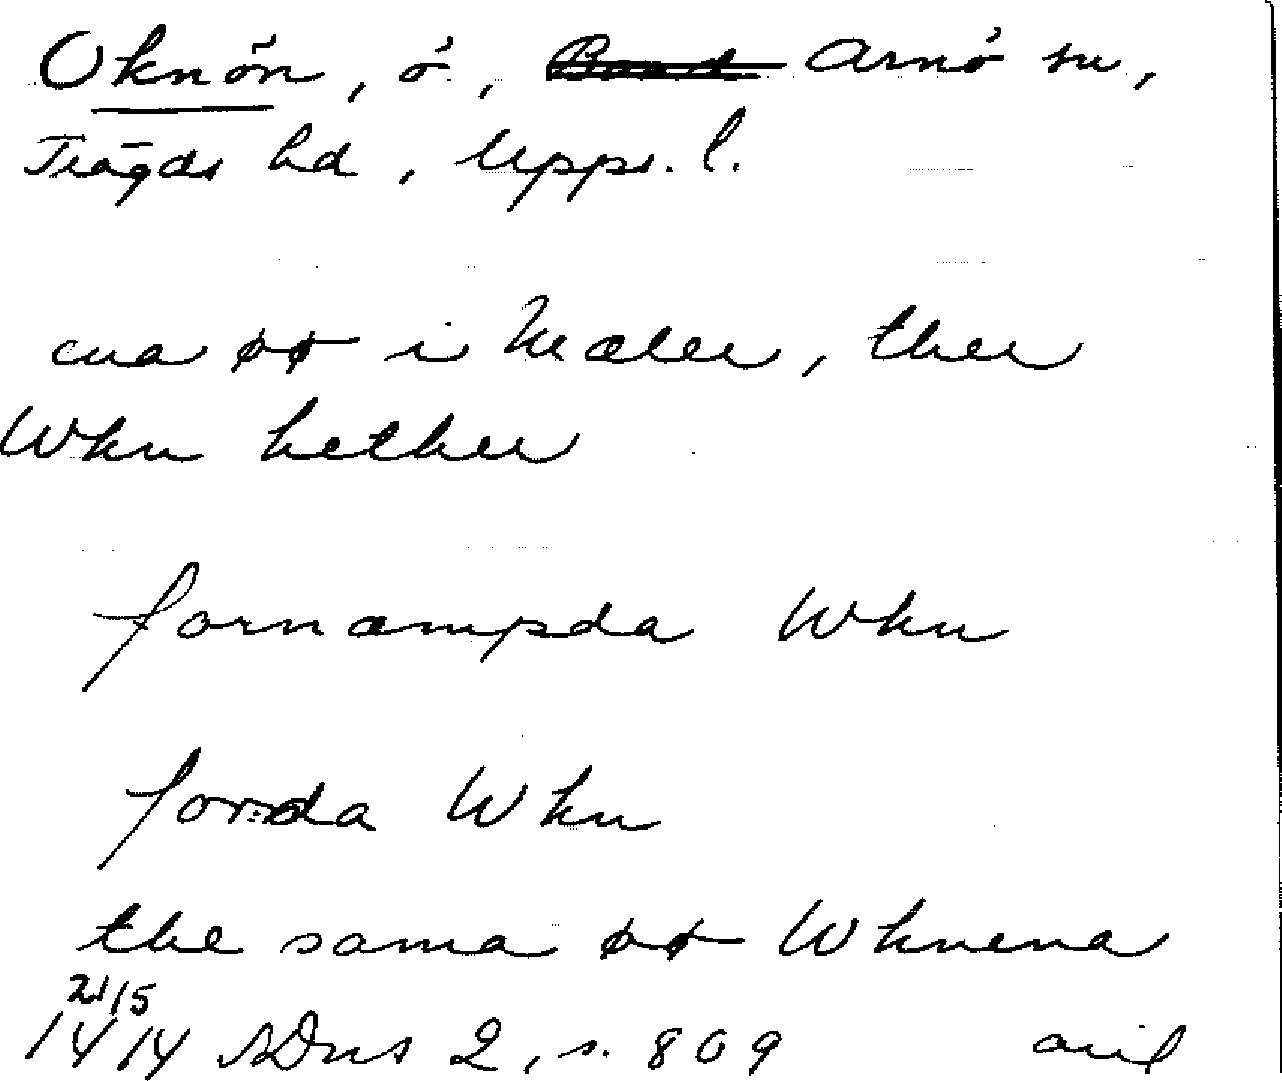 Oknön, ö, Arnö sn,
Trögds hd, Upps. l.
ena øø i Mæler, ther
Wkn hether
fornæmpda Wkn
forda Wkn
the sama øø Wknena
21/5
1414 SDns 2, s. 809 avil